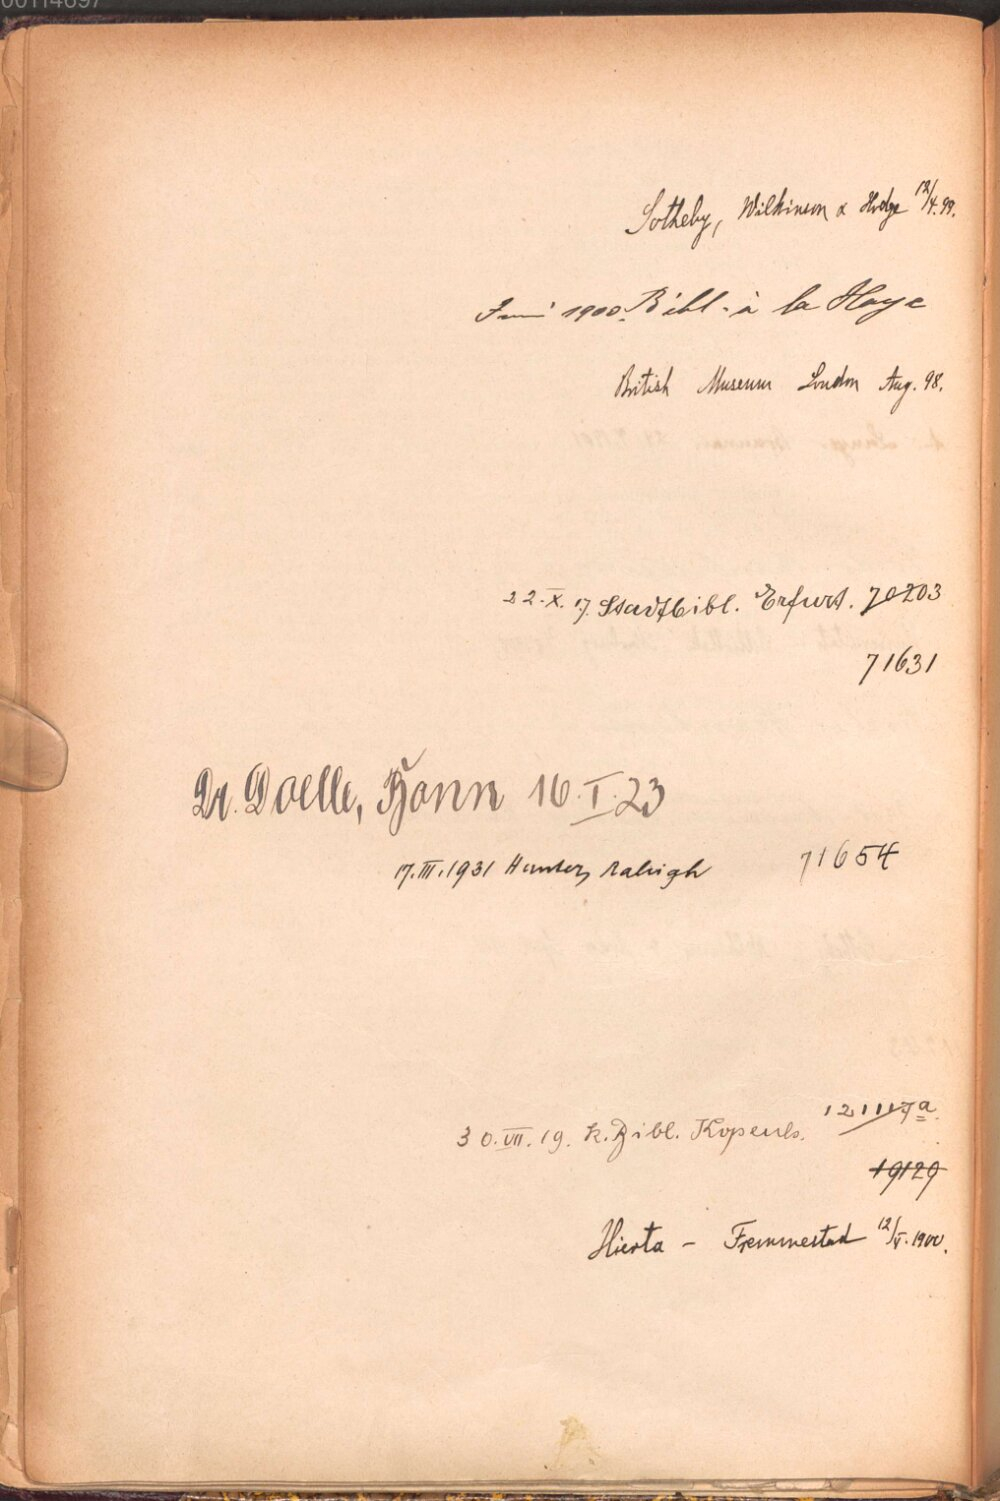 00114697
Sotheby, Wilkinson & Hodge 12/4.99.
Juni 1900. Bibl. à la Haye
British Museum London Aug. 98.
22.X.17. Stadtbibl. Erfurt. 70203
71631
Dr. Doelle, Bonn 16.I.23
17.III.1931 71654
30.VII.19. K. Bibl. Kopenh. 121117a
19129
Hierta - Fremmestad 12/V.1900.